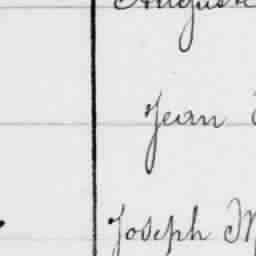 Auguste
Jean
Joseph M